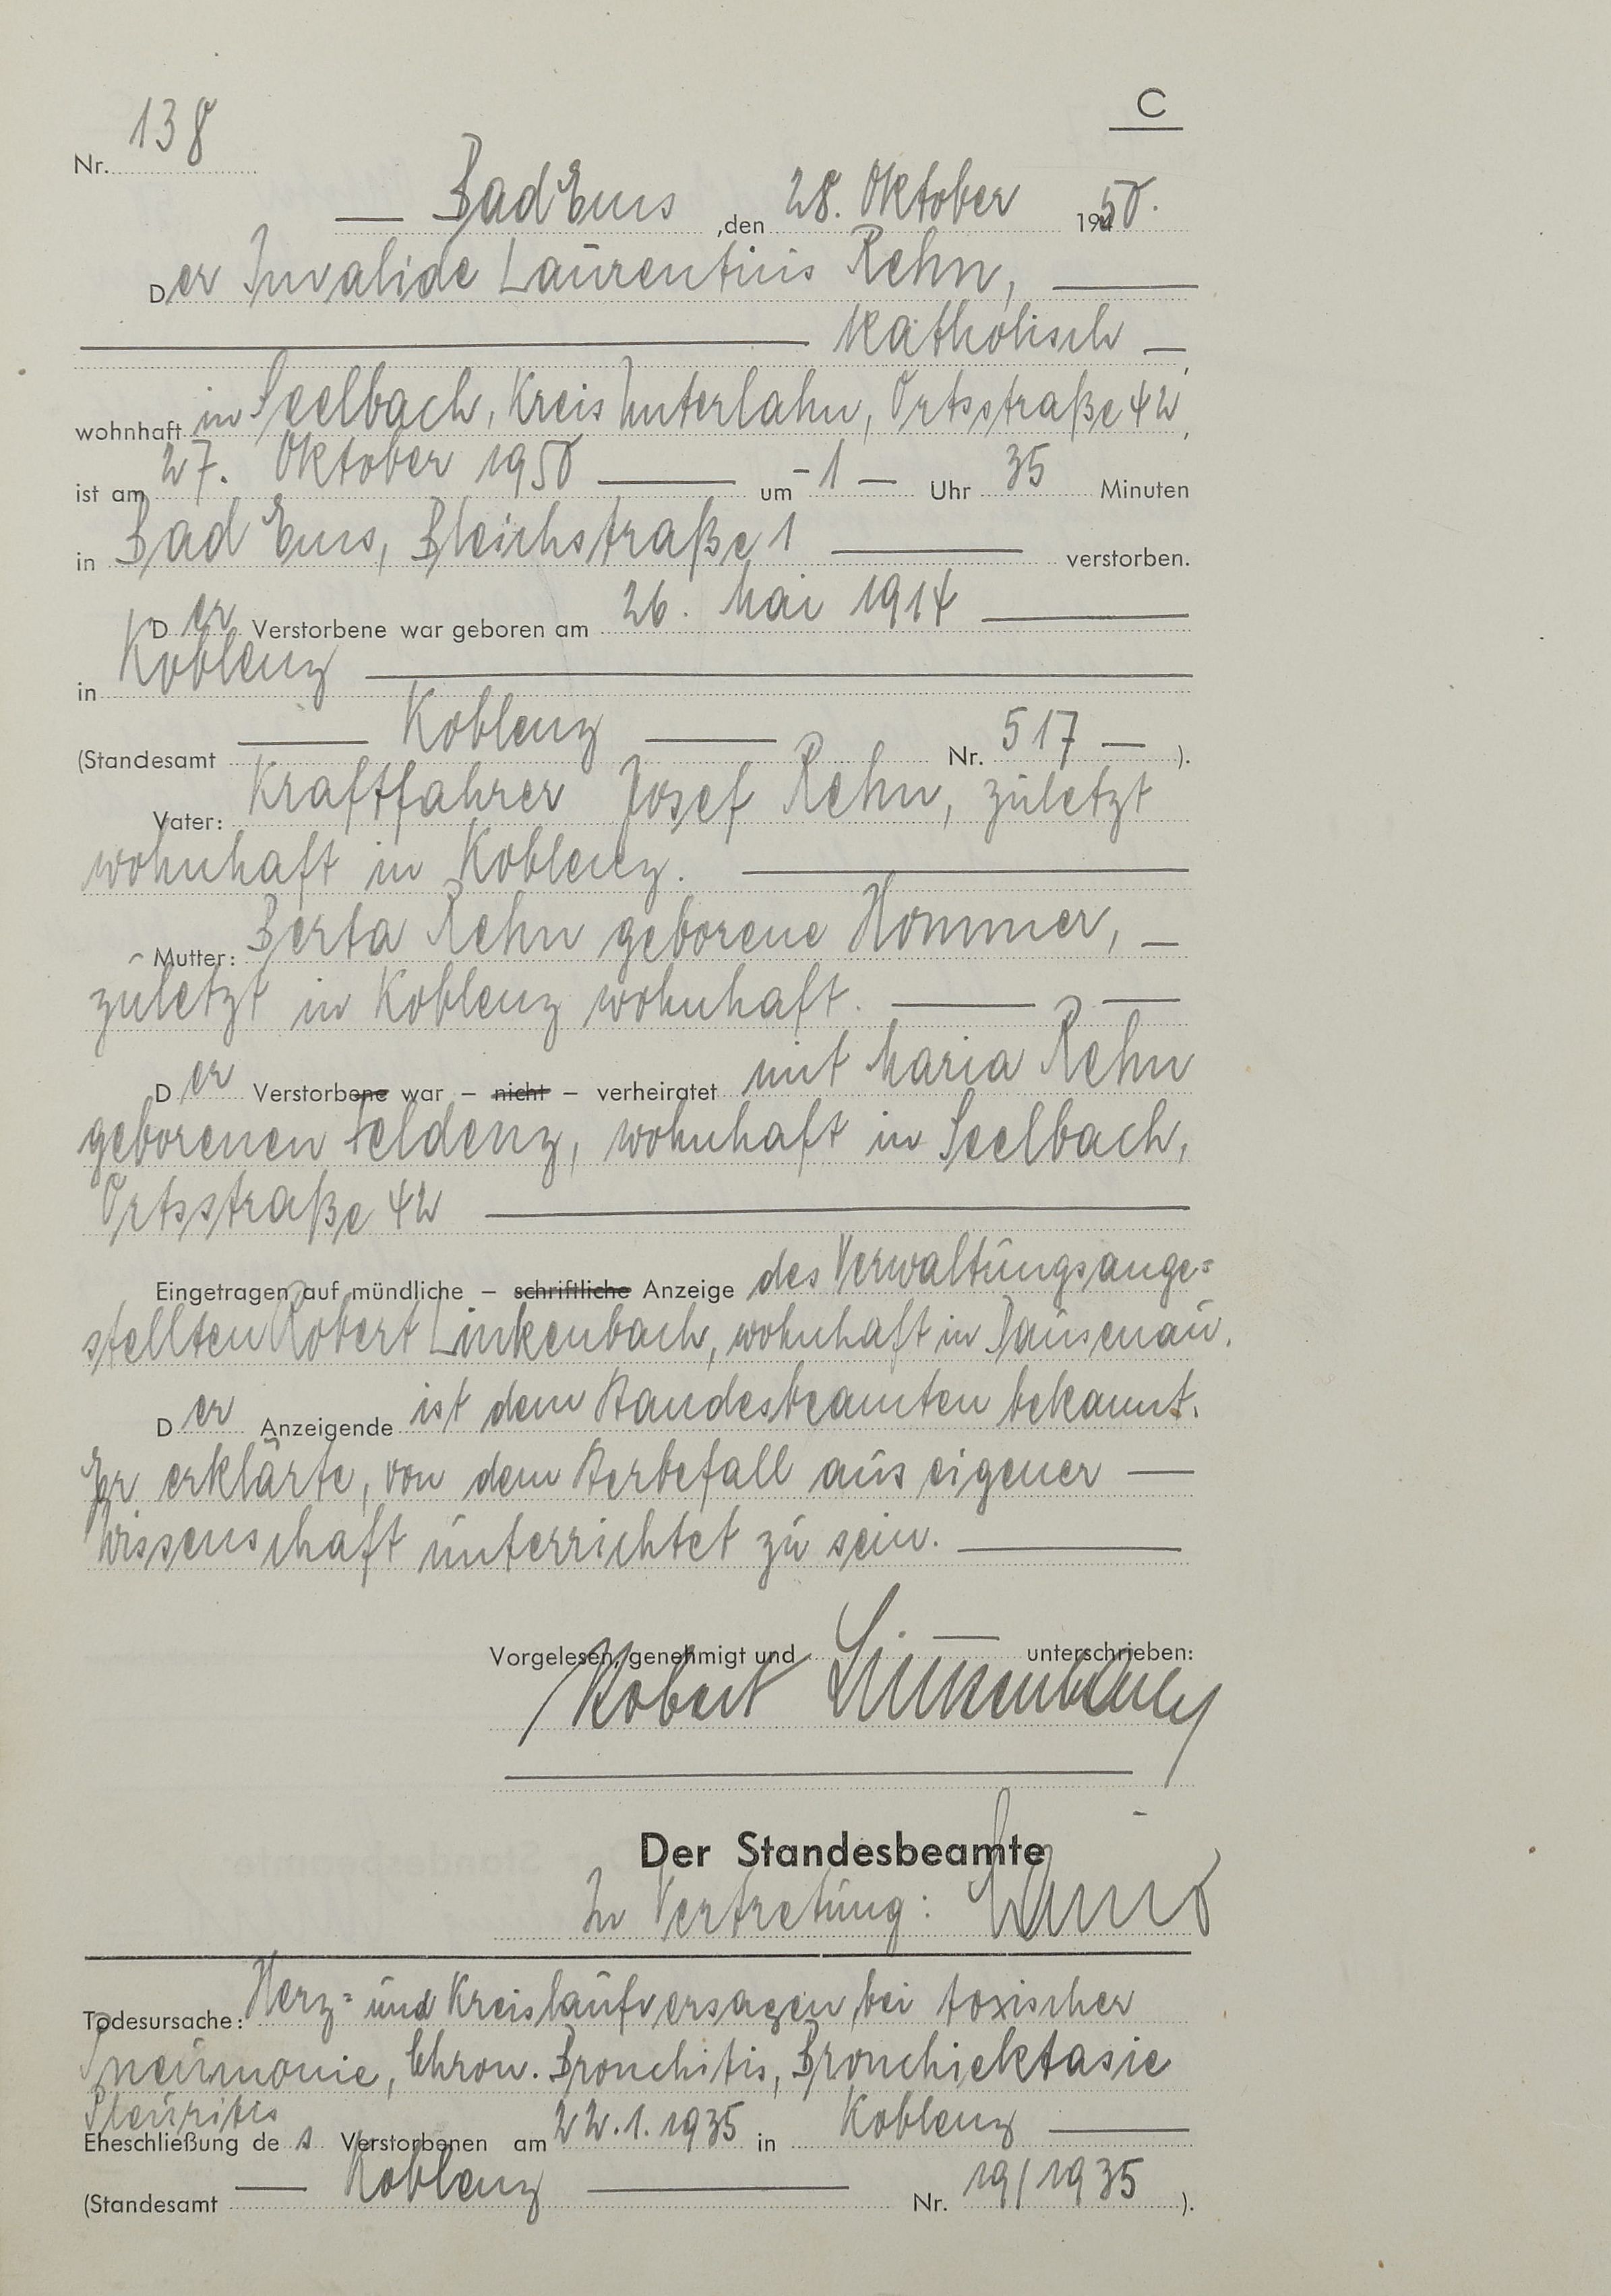 C
Nr. 138
Bad Ems, den 28. Oktober 1950.
Der Invalide Laurentius Rehn,
katholisch
wohnhaft in Seelbach, Kreis Unterlahn, Ortsstraße 42,
ist am 27. Oktober 1950 um 1 Uhr 35 Minuten
in Bad Ems, Bleichstraße 1 verstorben.
Der Verstorbene war geboren am 26. Mai 1914
in Koblenz
(Standesamt Koblenz Nr. 517).
Vater: Kraftfahrer Josef Rehn, zuletzt
wohnhaft in Koblenz.
Mutter: Berta Rehn geborene Hommer,
zuletzt in Koblenz wohnhaft.
Der Verstorbene war – nicht – verheiratet mit Maria Rehn
geborenen Feldenz, wohnhaft in Seelbach,
Ortsstraße 42
Eingetragen auf mündliche – schriftliche Anzeige des Verwaltungsange=
stellten Robert Linkenbach, wohnhaft in Dausenau.
Der Anzeigende ist dem Standesbeamten bekannt.
Er erklärte, von dem Sterbefall aus eigener
Wissenschaft unterrichtet zu sein.
Vorgelesen, genehmigt und unterschrieben:
Robert Linkenbach
Der Standesbeamte
In Vertretung:
Todesursache: Herz= und Kreislaufversagen bei toxischer
Pneumonie, Chron. Bronchitis, Bronchiektasie
Pleuritis
Eheschließung des Verstorbenen am 22.1.1935 in Koblenz
(Standesamt Koblenz Nr. 19/1935).